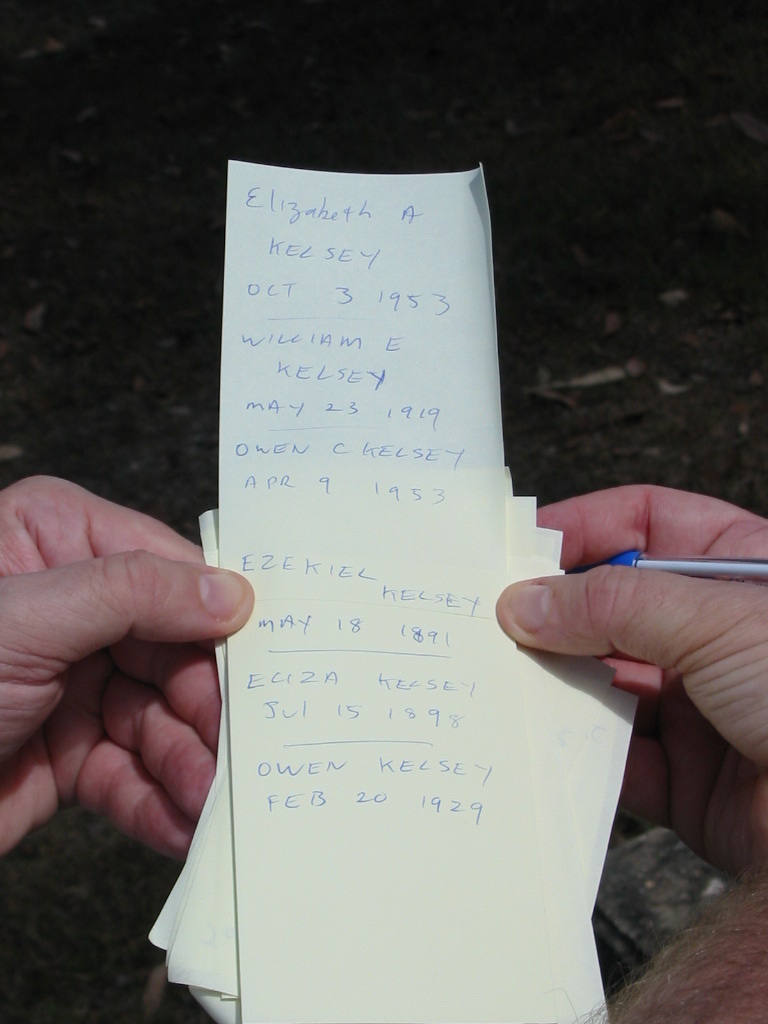 Elizabeth A
KELSEY
OCT 3 1953
WILLIAM E
KELSEY
MAY 23 1919
OWEN C KELSEY
APR 9 1953
EZEKIEL
KELSEY
MAY 18 1891
ELIZA KELSEY
Jul 15 1898
OWEN KELSEY
FEB 20 1929